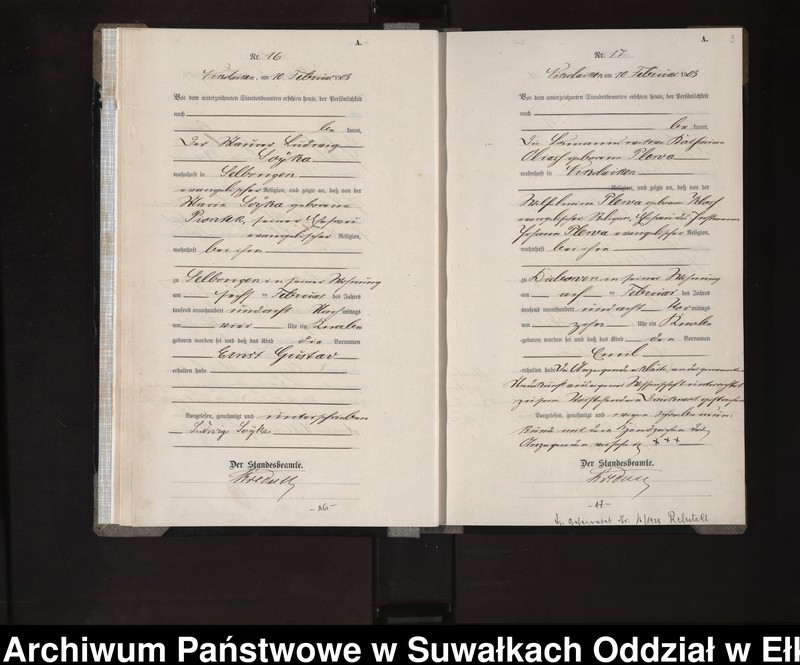 A.
Nr. 16
am 10. Februar 1908
Vor dem unterzeichneten Standesbeamten erschien heute, der Persönlichkeit
nach
be kannt,
Der Maurer Ludwig
Soyka
wohnhaft in Selbongen
evangelischer Religion, und zeigte an, daß von der
Marie Soyka geborene
seiner Ehefrau
evangelischer Religion,
wohnhaft bei ihm
zu Selbongen in seiner Wohnung
am sechs ten Februar des Jahres
tausend neunhundert und acht Nach mittags
um vier Uhr ein Knabe
geboren worden sei und daß das Kind die Vornamen
Ernst Gustav
erhalten habe
Vorgelesen, genehmigt und unterschrieben
Ludwig Soyka
Der Standesbeamte.
-16-
A.
Nr. 17
am 10. Februar 1908
Vor dem unterzeichneten Standesbeamten erschien heute, der Persönlichkeit
nach
be kannt,
Die Hebamme
geborene Plewa
wohnhaft in
Religion, und zeigte an, daß von der
Wilhelmine Plewa geborene
evangelischer Religion, Ehefrau des
Johann Plewa evangelischer Religion,
wohnhaft bei ihm
zu in seiner Wohnung
am acht ten Februar des Jahres
tausend neunhundert und acht Vor mittags
um zehn Uhr ein Knabe
geboren worden sei und daß das Kind den Vornamen
Emil
erhalten habe. Die Anzeigende erklärte, an der genannten
Niederkunft aus eigener Wissenschaft unterrichtet
zu sein.
Vorgelesen, genehmigt und wegen Schreibensun-
kunde mit dem Handzeichen der
Anzeigenden versehen +++
Der Standesbeamte.
-17-
Archiwum Państwowe w Suwałkach Oddział w Ełk